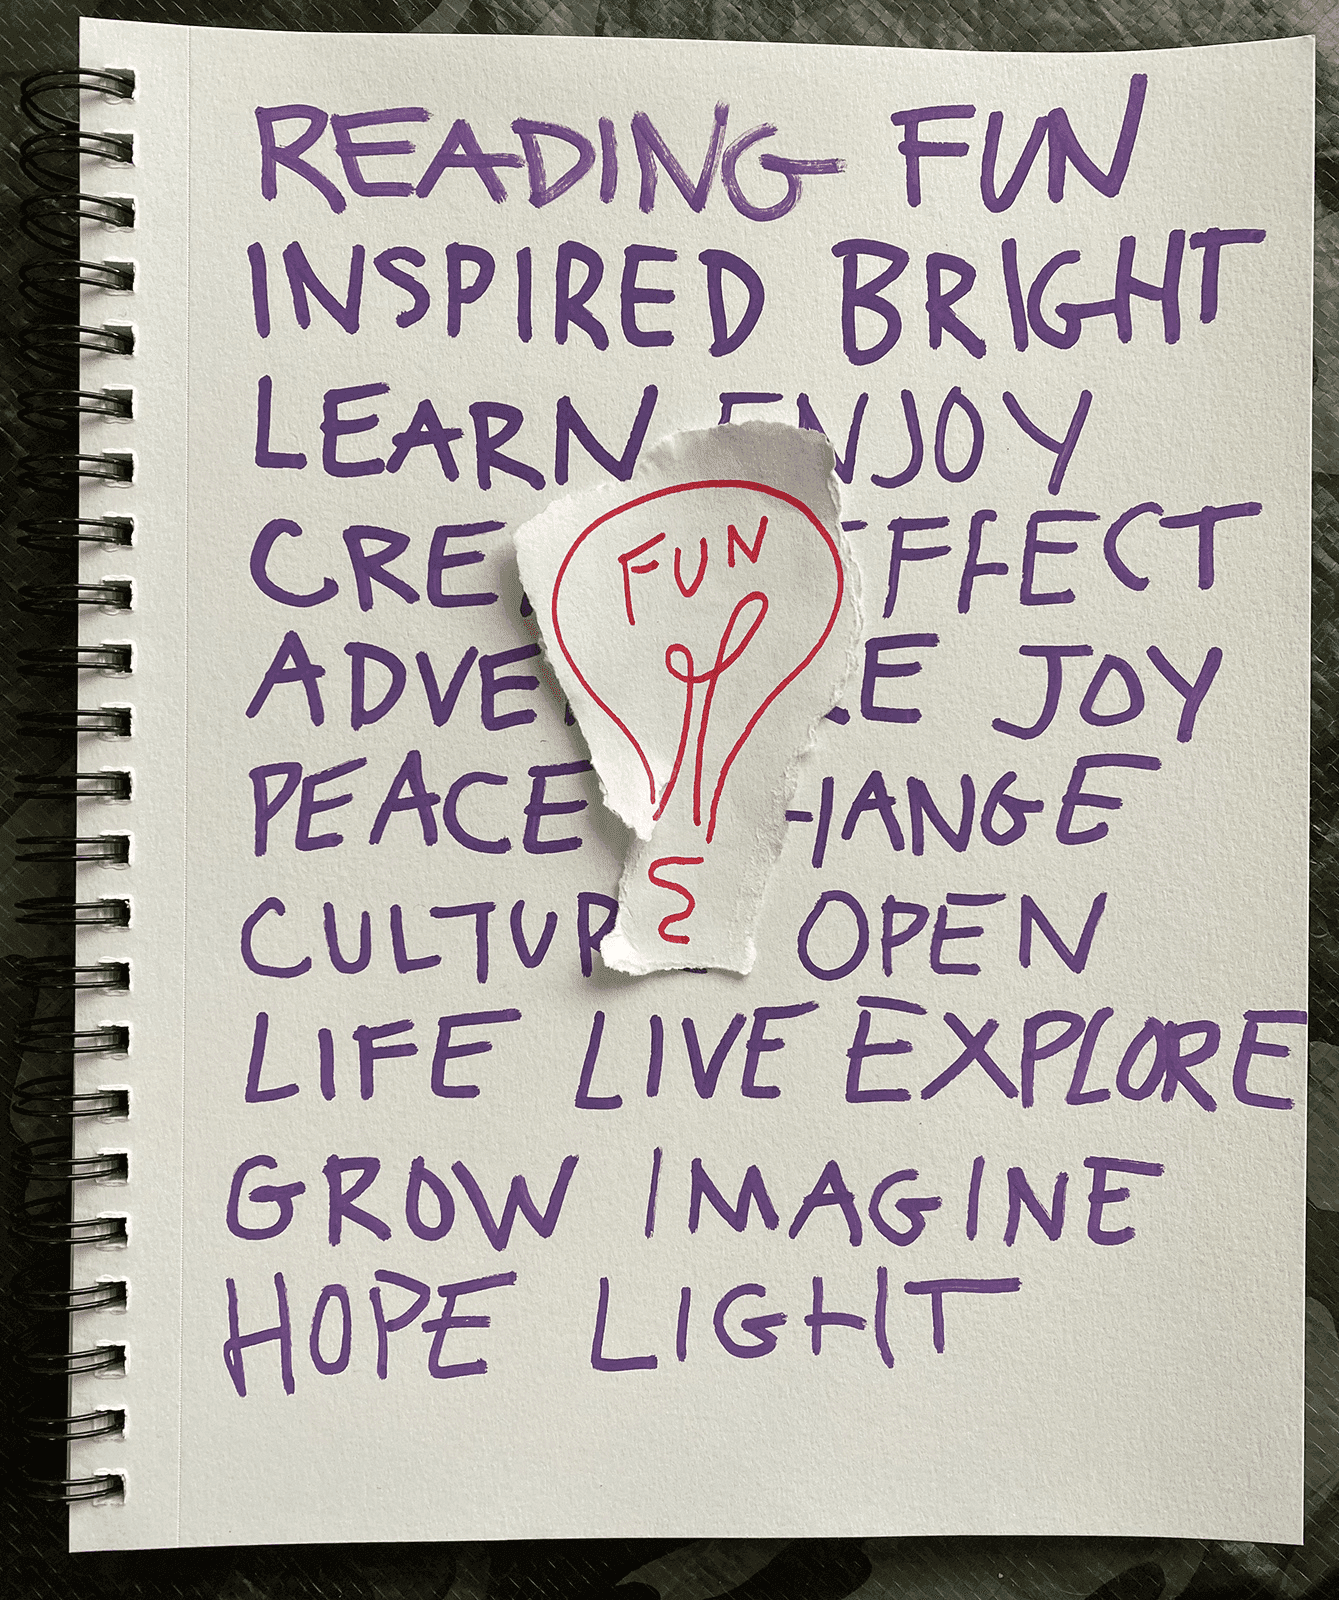 READING FUN
INSPIRED BRIGHT
LEARN ENJOY
FUN
EFFECT
JOY
PEACE CHANGE
OPEN
LIFE LIVE EXPLORE
GROW IMAGINE
HOPE LIGHT